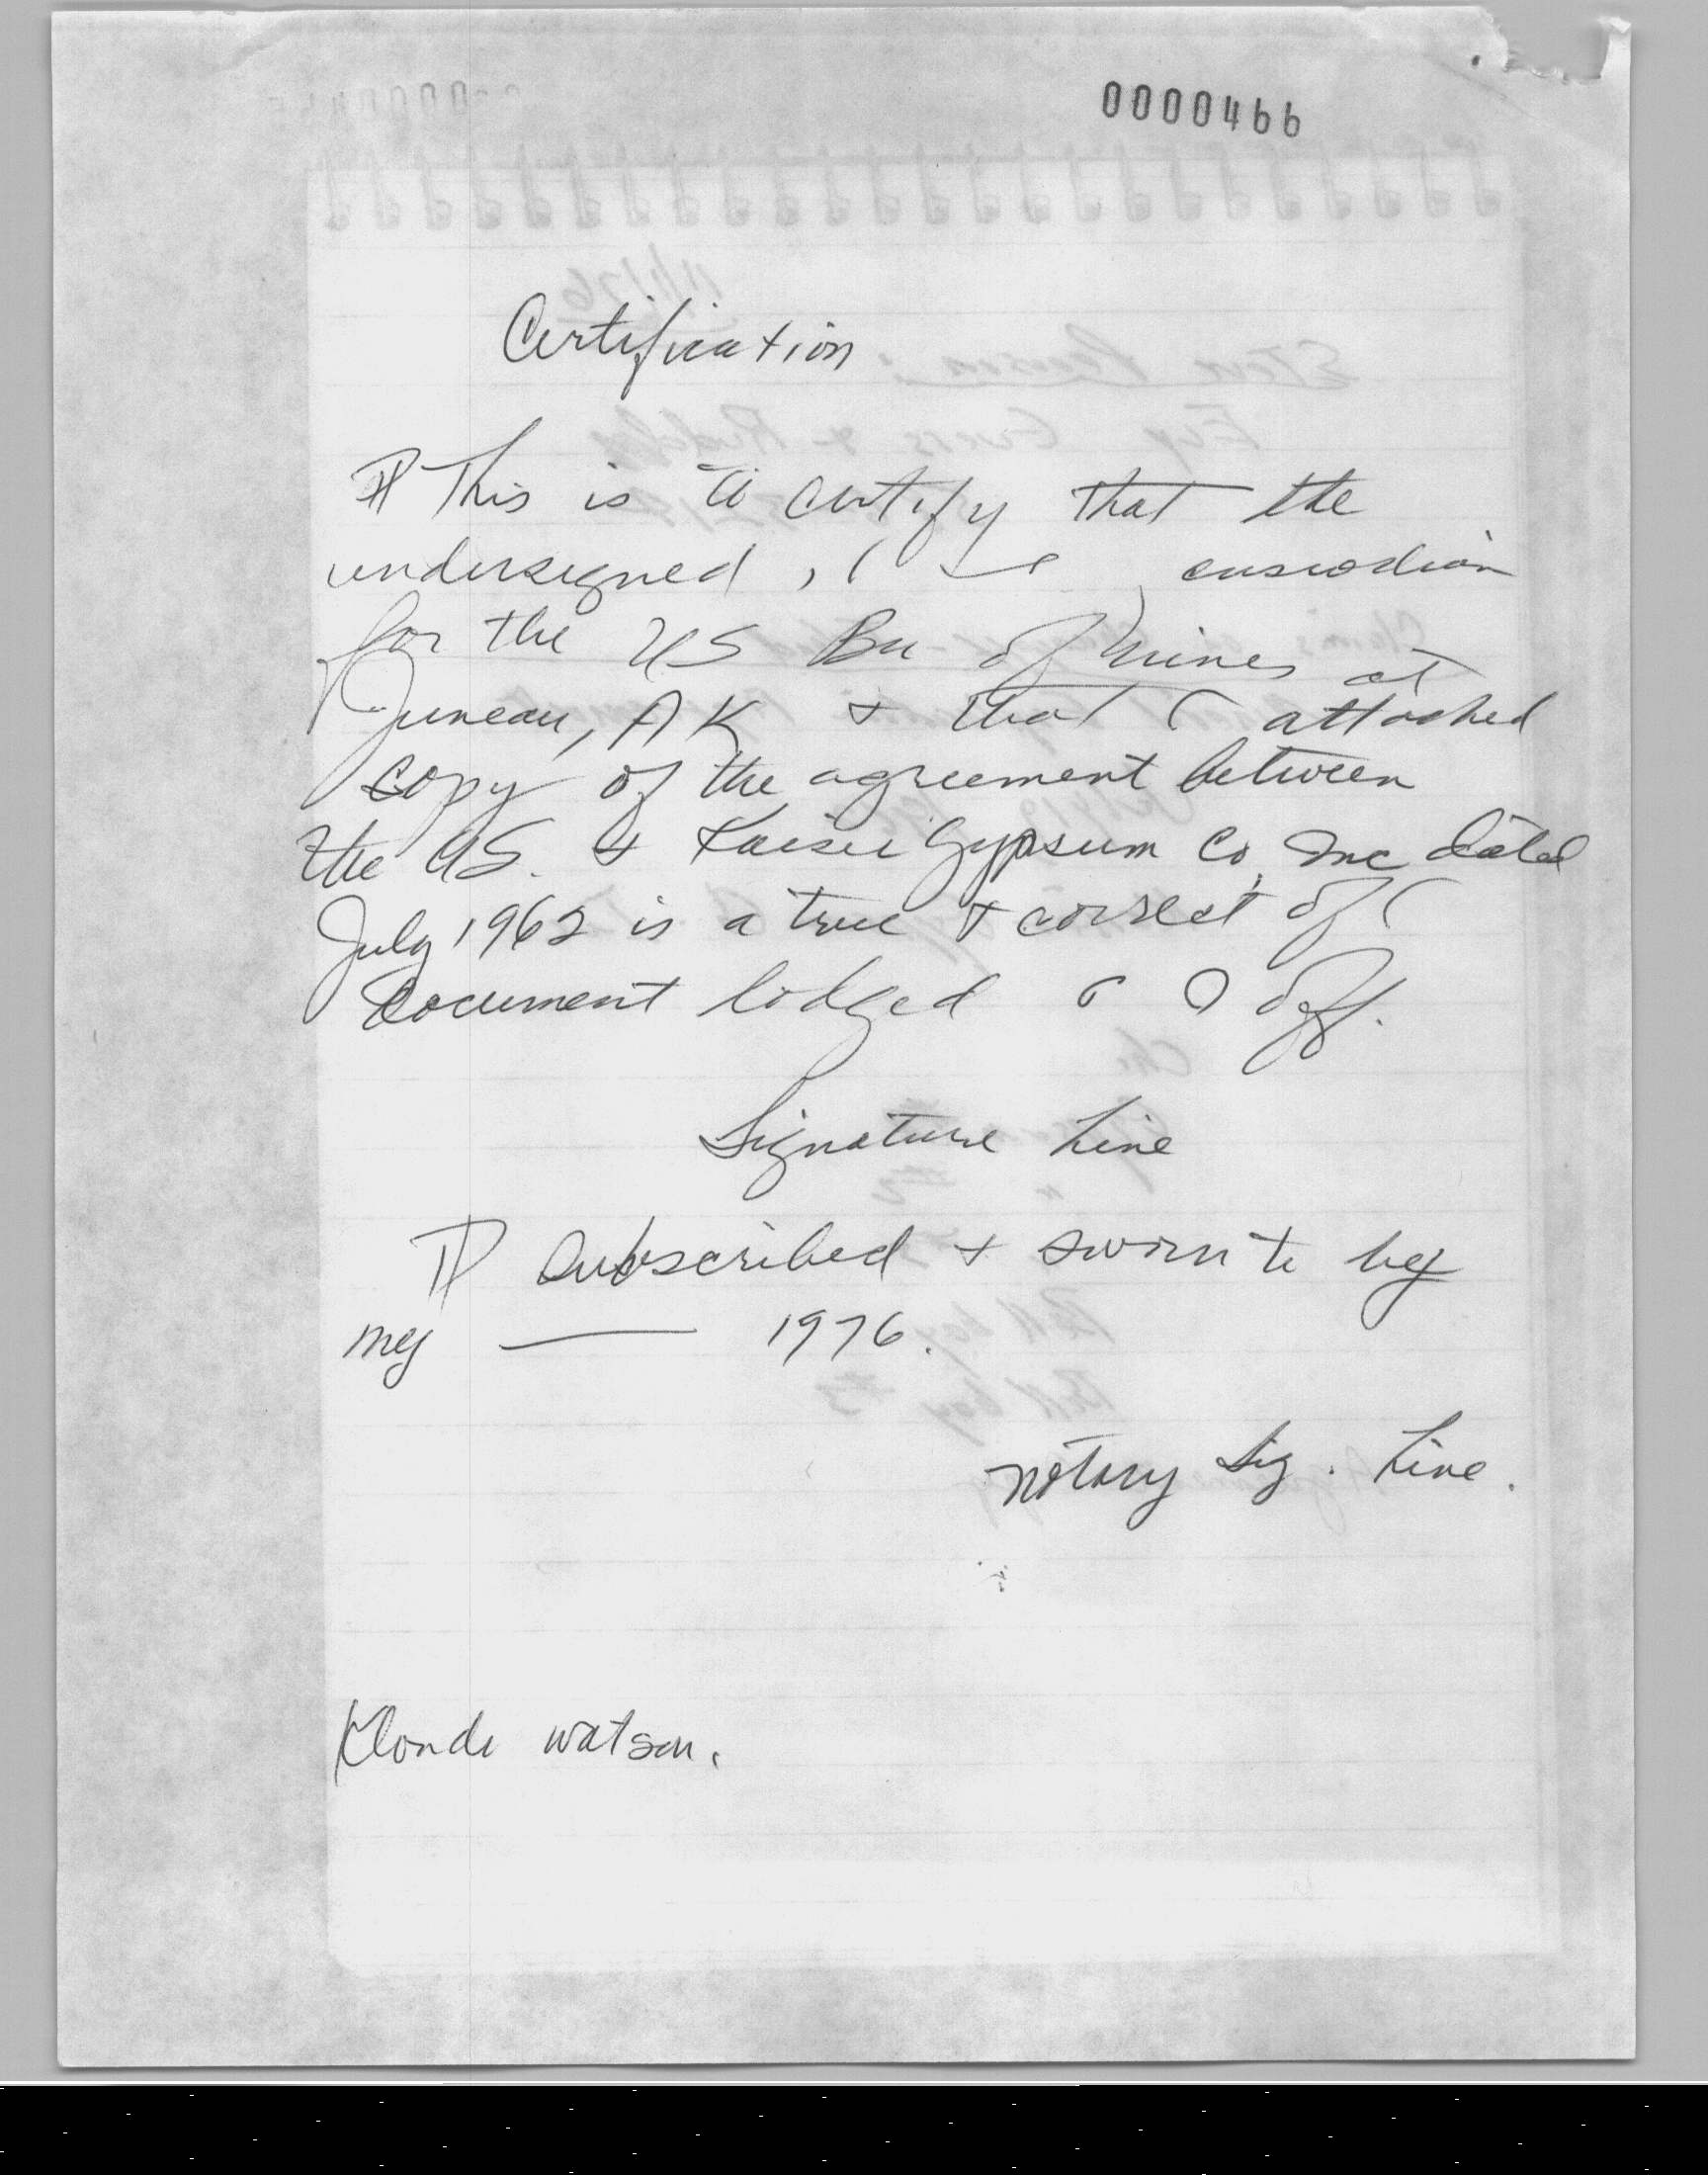 0000466
Certification
This is to certify that the
undersigned, custodian
for the US Bu of Mines at
Juneau, AK + that attached
copy of the agreement between
the US. + Kaiser Gypsum Co, Inc dated
July 1962 is a true + correct of
document lodged off.
Signature Line
Subscribed + sworn to
1976.
Notary Sig. Line.
Watson.